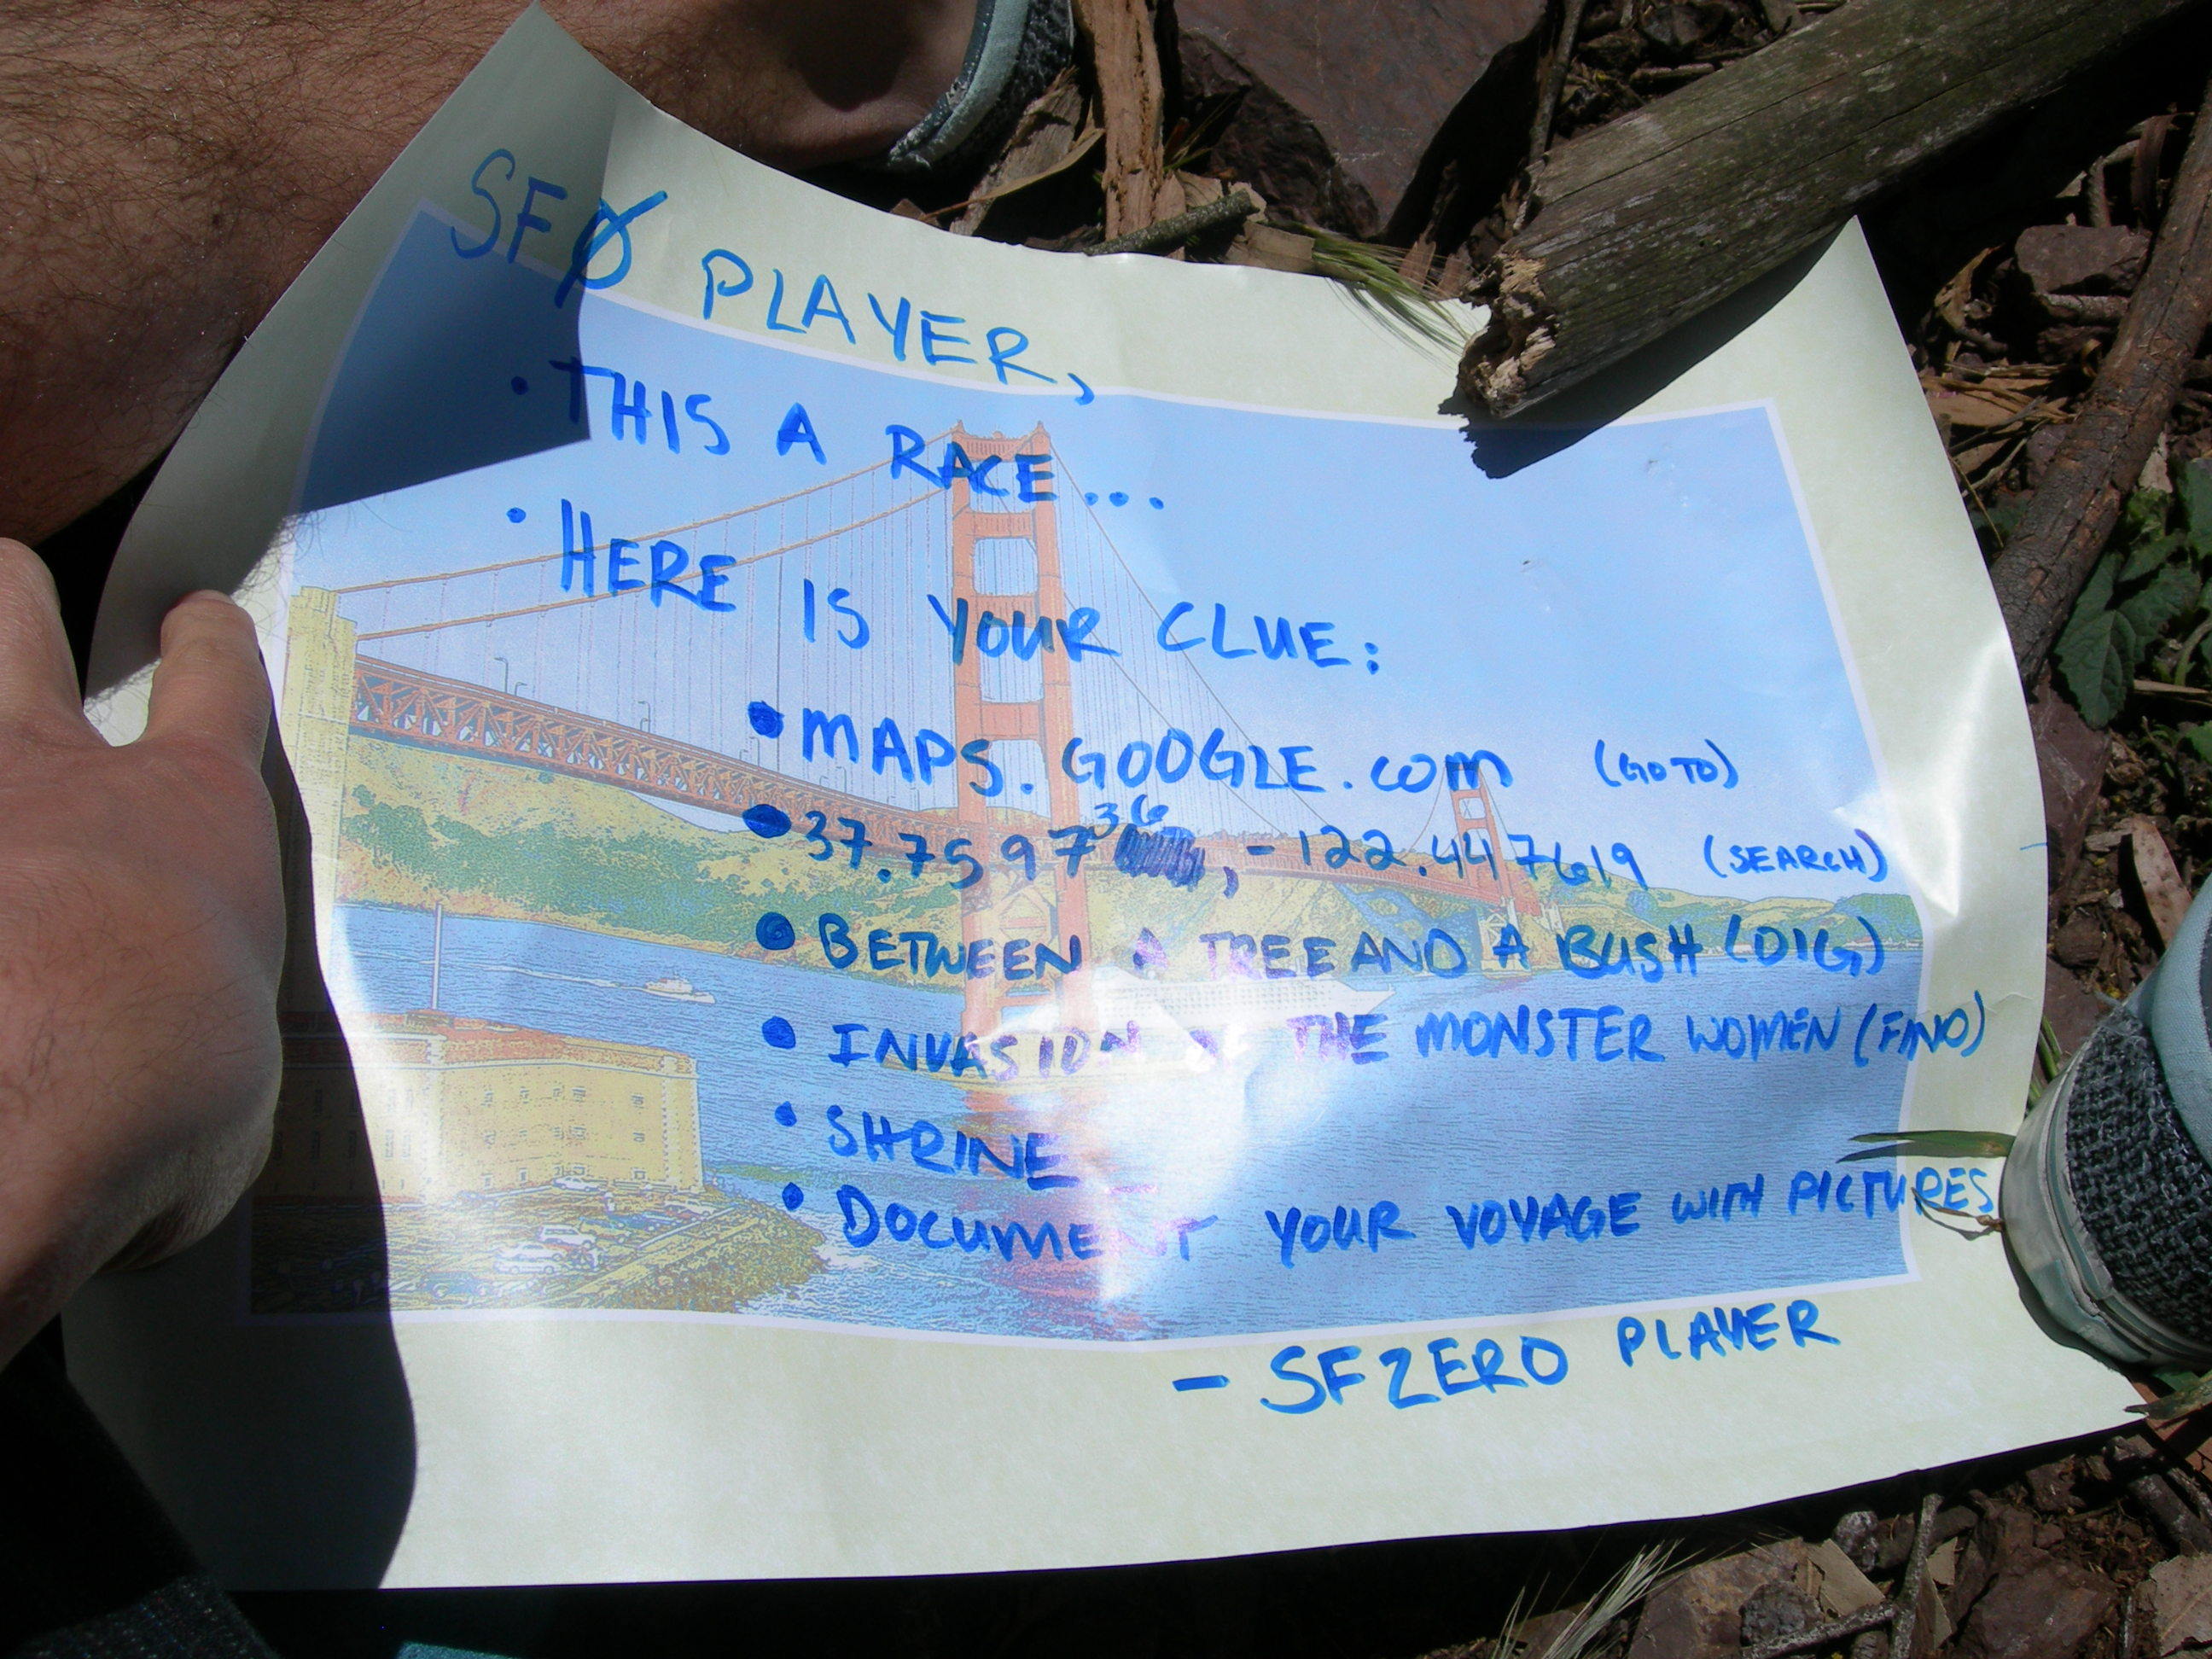 SFØ PLAYER,
• THIS A RACE...
• HERE IS YOUR CLUE:
• MAPS.GOOGLE.COM (GO TO)
• 37.759736, -122.447619 (SEARCH)
• BETWEEN A TREE AND A BUSH (DIG)
• INVASION OF THE MONSTER WOMEN (FIND)
• SHRINE
• DOCUMENT YOUR VOYAGE WITH PICTURES
- SFZERO PLAYER